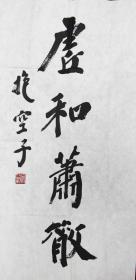 虚和萧散
抱空子